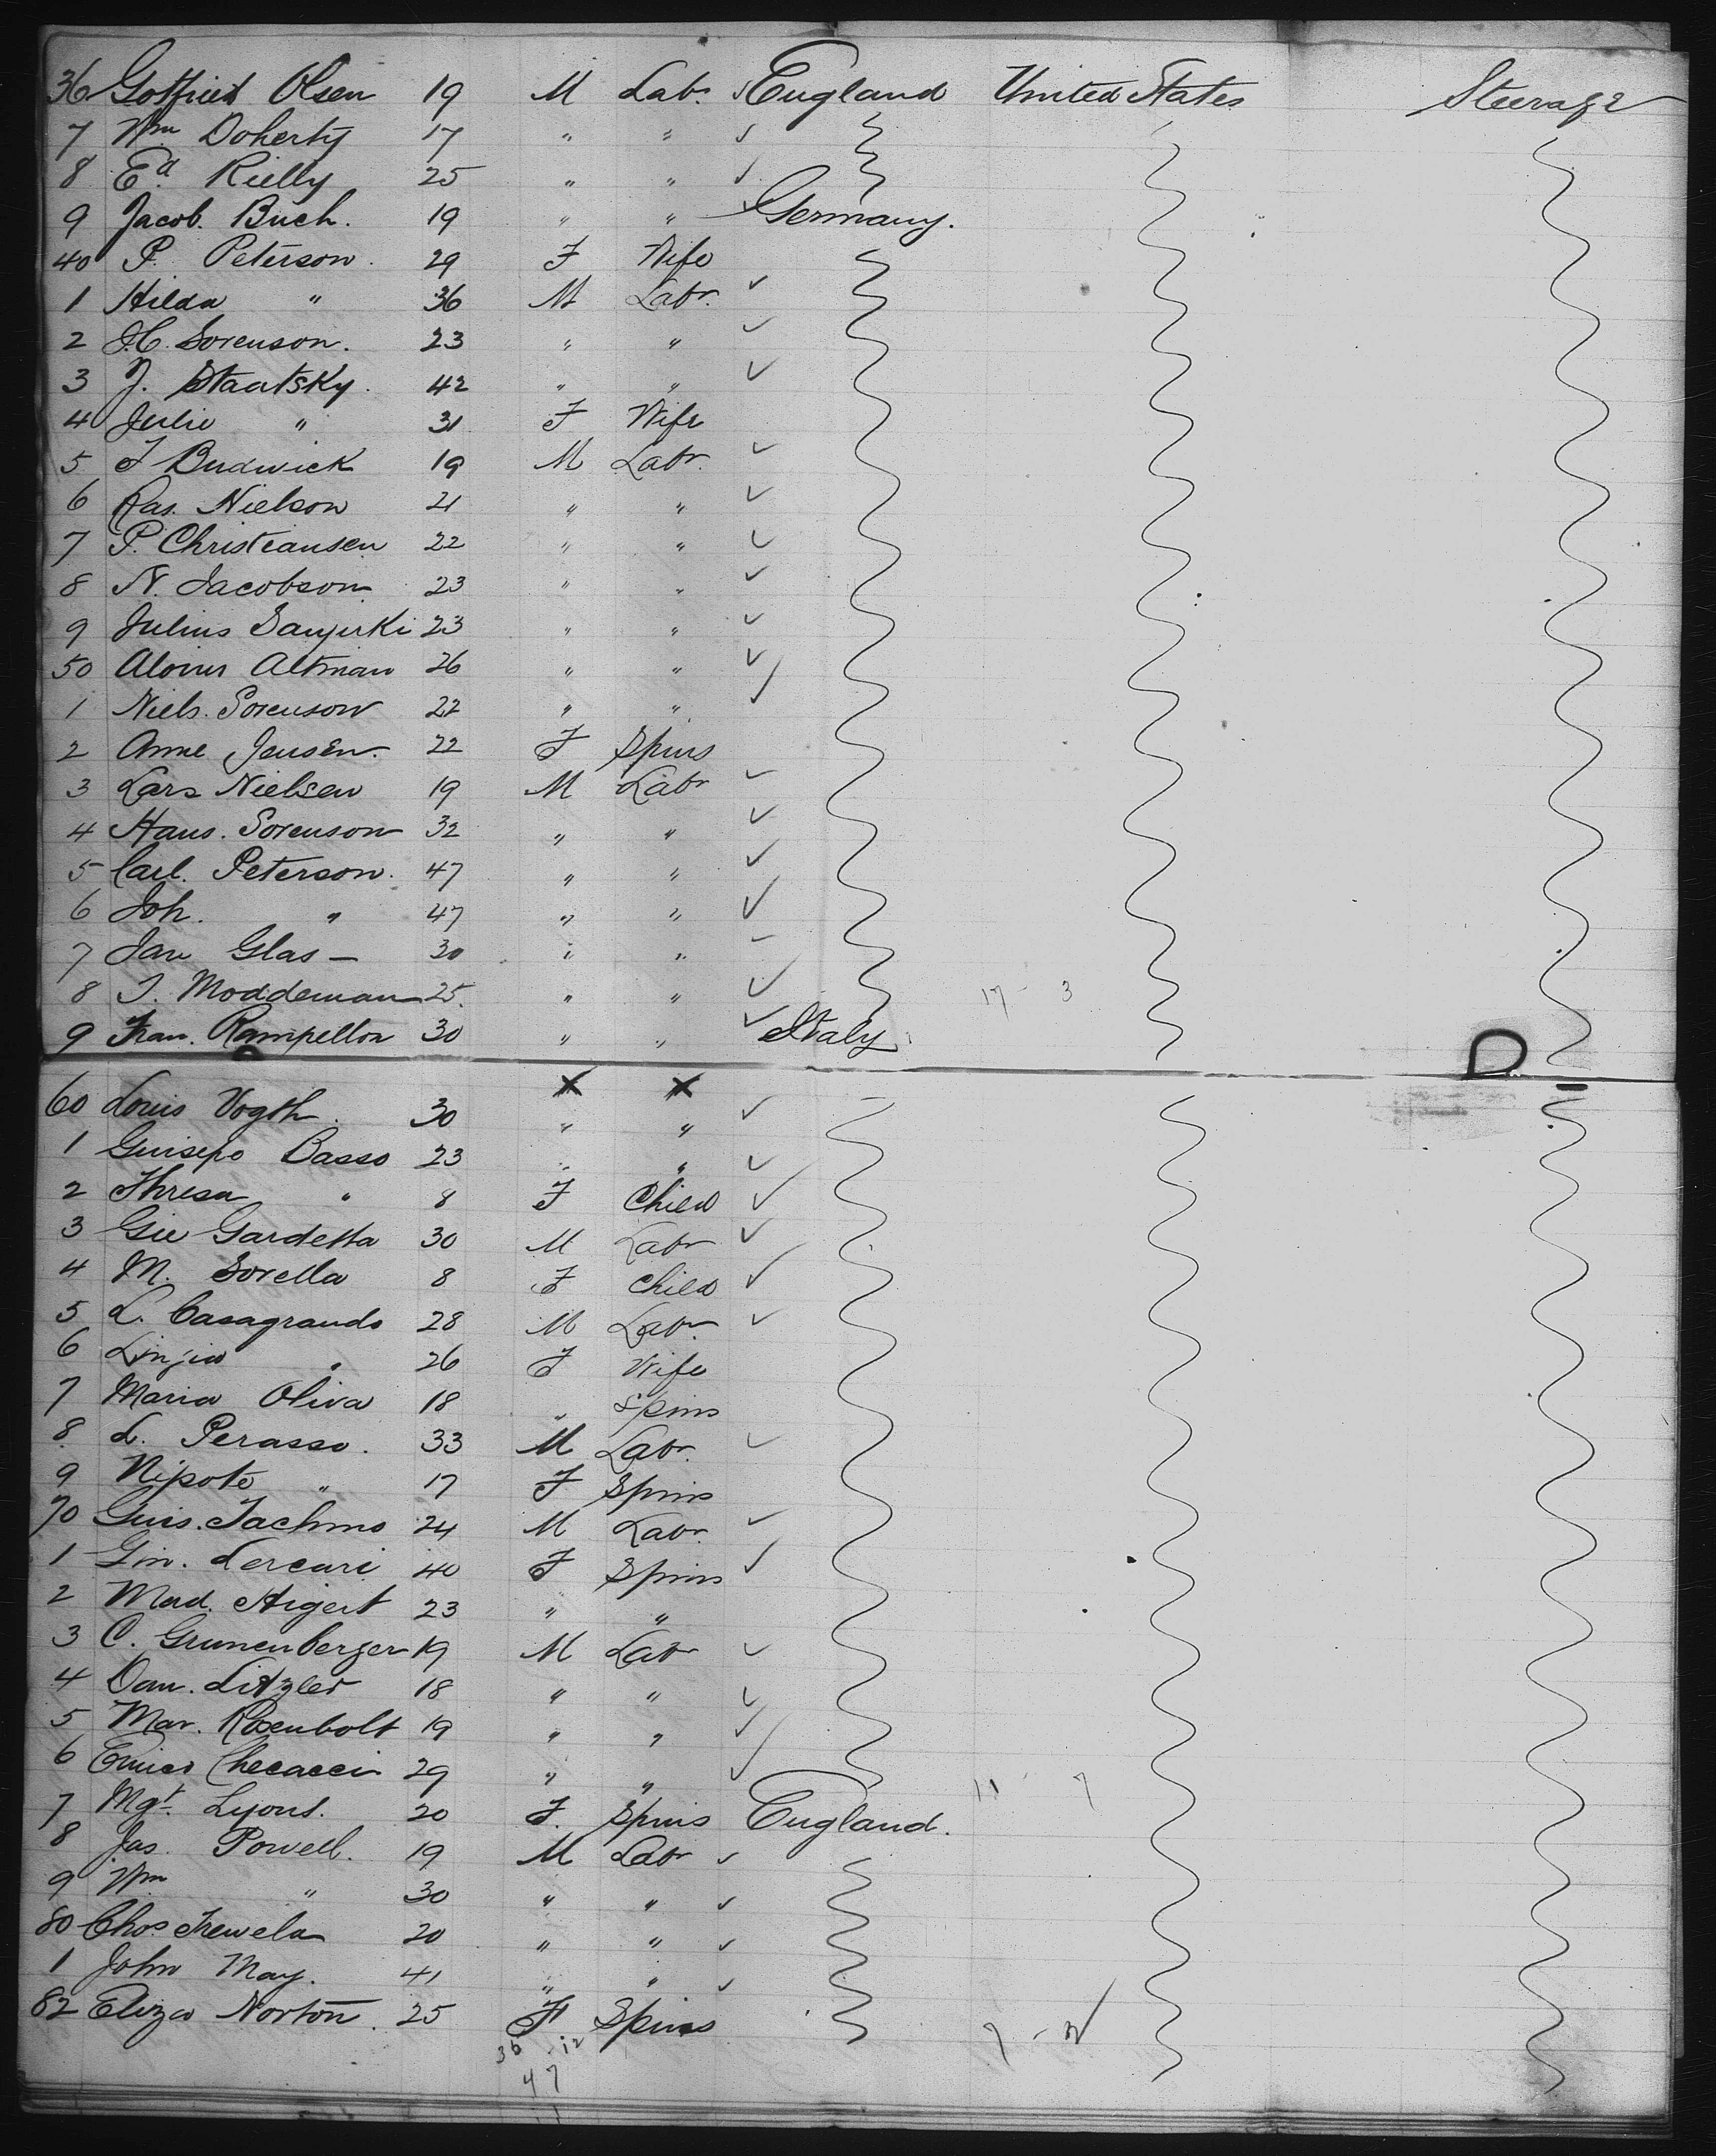 36 Gotfried Olsen 19 M Labr. England United States Steerage
7 Wm Doherty 17 " "
8 Ed. Rielly 25 " "
9 Jacob. Buch. 19 " " Germany.
40 P. Peterson. 29 F Wife
1 Hilda " 36 M Labr.
2 J.C. Sorenson. 23 " "
3 J. Staatsky. 42 " "
4 Julie " 31 F Wife
5 F Budwick 19 M Labr.
6 Ras. Nielson 21 " "
7 P. Christiansen 22 " "
8 N. Jacobson 23 " "
9 Julius 23 " "
50 Altman 26 " "
1 Niels. Sorenson 22 " "
2 Anne Jensen. 22 F Spins
3 Lars Nielsen 19 M Labr
4 Hans. Sorenson 32 " "
5 Carl. Peterson. 47 " "
6 Joh. " 47 " "
7 Jan Glas — 30 " "
8 J. Moddeman 25. " " 17 - 3
9 Fran. Rampellon 30 " " Italy
D
60 Louis Vogth. 30 " "
1 Guisepo Basso 23 " "
2 Thresa " 8 F Child
3 Gie Gardetta 30 M Labr
4 M. Sorella 8 F Child
5 L. Casagrande 28 M Labr.
6 " 26 F Wife
7 Maria Oliva 18 " Spins
8 L. Perasso. 33 M Labr.
9 Nipote " 17 F Spins
70 Guis. 24 M Labr.
1 Gin. Lercari 40 F Spins
2 Mad. Aigert 23 " "
3 C. Grunenberger 19 M Labr
4 Dam. Litzler 18 " "
5 Mar. Rosenbolt 19 " "
6 Checacci 29 " " 11 7
7 Mgt. Lyons. 20 F. Spins England.
8 Jas. Powell. 19 M Labr
9 Wm " 30 " "
80 Chos 20 " "
1 John May. 41 " "
82 Eliza Norton. 25 F Spins
7 - 2
36 . 12
47